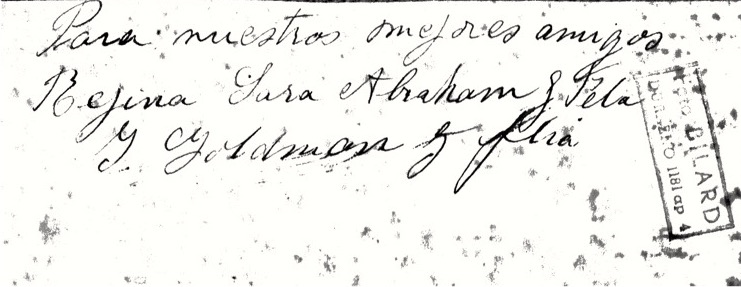 Para nuestros mejores amigos
Regina Sara Abraham y Fela
Y Goldman y flia
BILARD
1181 ap 4